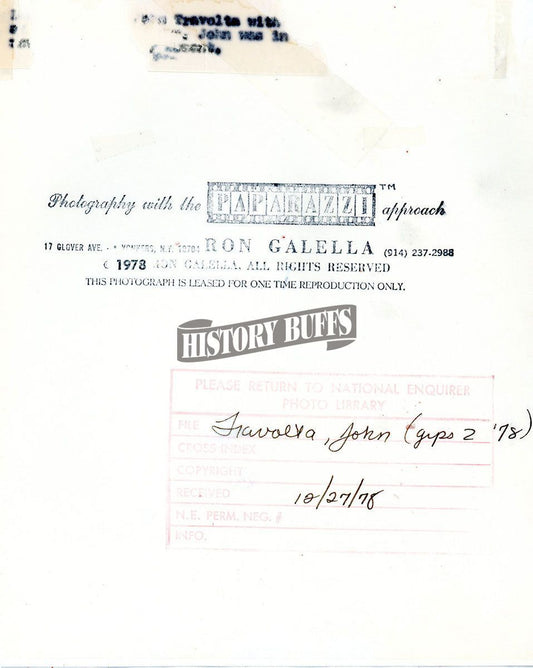 Travolta with
John was in
Photography with the PAPARAZZI TM approach
17 GLOVER AVE. YONKERS, N.Y. 10704 RON GALELLA (914) 237-2988
© 1978 RON GALELLA. ALL RIGHTS RESERVED
THIS PHOTOGRAPH IS LEASED FOR ONE TIME REPRODUCTION ONLY.
HISTORY BUFFS
PLEASE RETURN TO NATIONAL ENQUIRER
PHOTO LIBRARY
FILE Travolta, John (grps 2 '78)
CROSS INDEX
COPYRIGHT
RECEIVED 10/27/78
N.E. PERM. NEG. #
INFO.